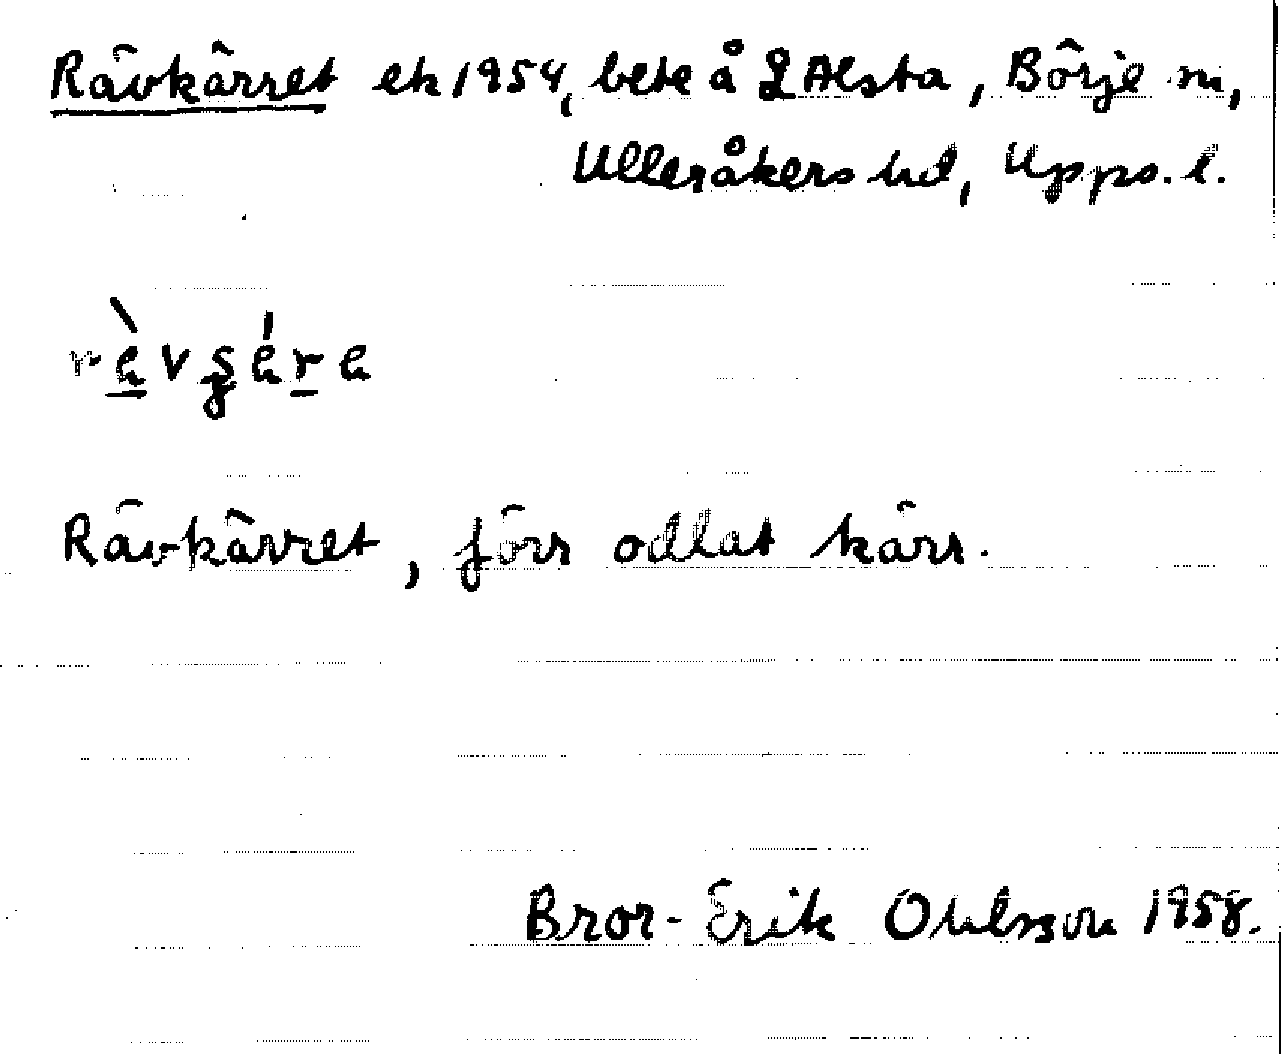 Rävkärret ek 1954, bete å L Alsta, Börje sn,
Ulleråkers hd, Upps. l.
Rävkärret, förr odlat kärr.
Bror-Erik Ohlsson 1958.